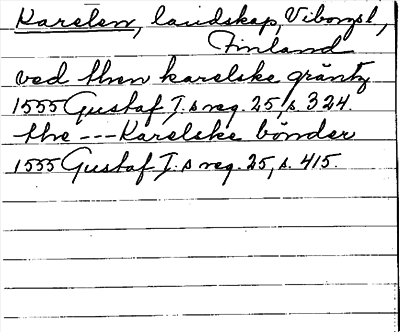 Karelen, landskap, Viborgsl.,
Finland
ved then karelske gräntz
1555 Gustaf I:s reg. 25, s. 324.
the --- Karelske bönder
1555 Gustaf I:s reg. 25, s. 415.